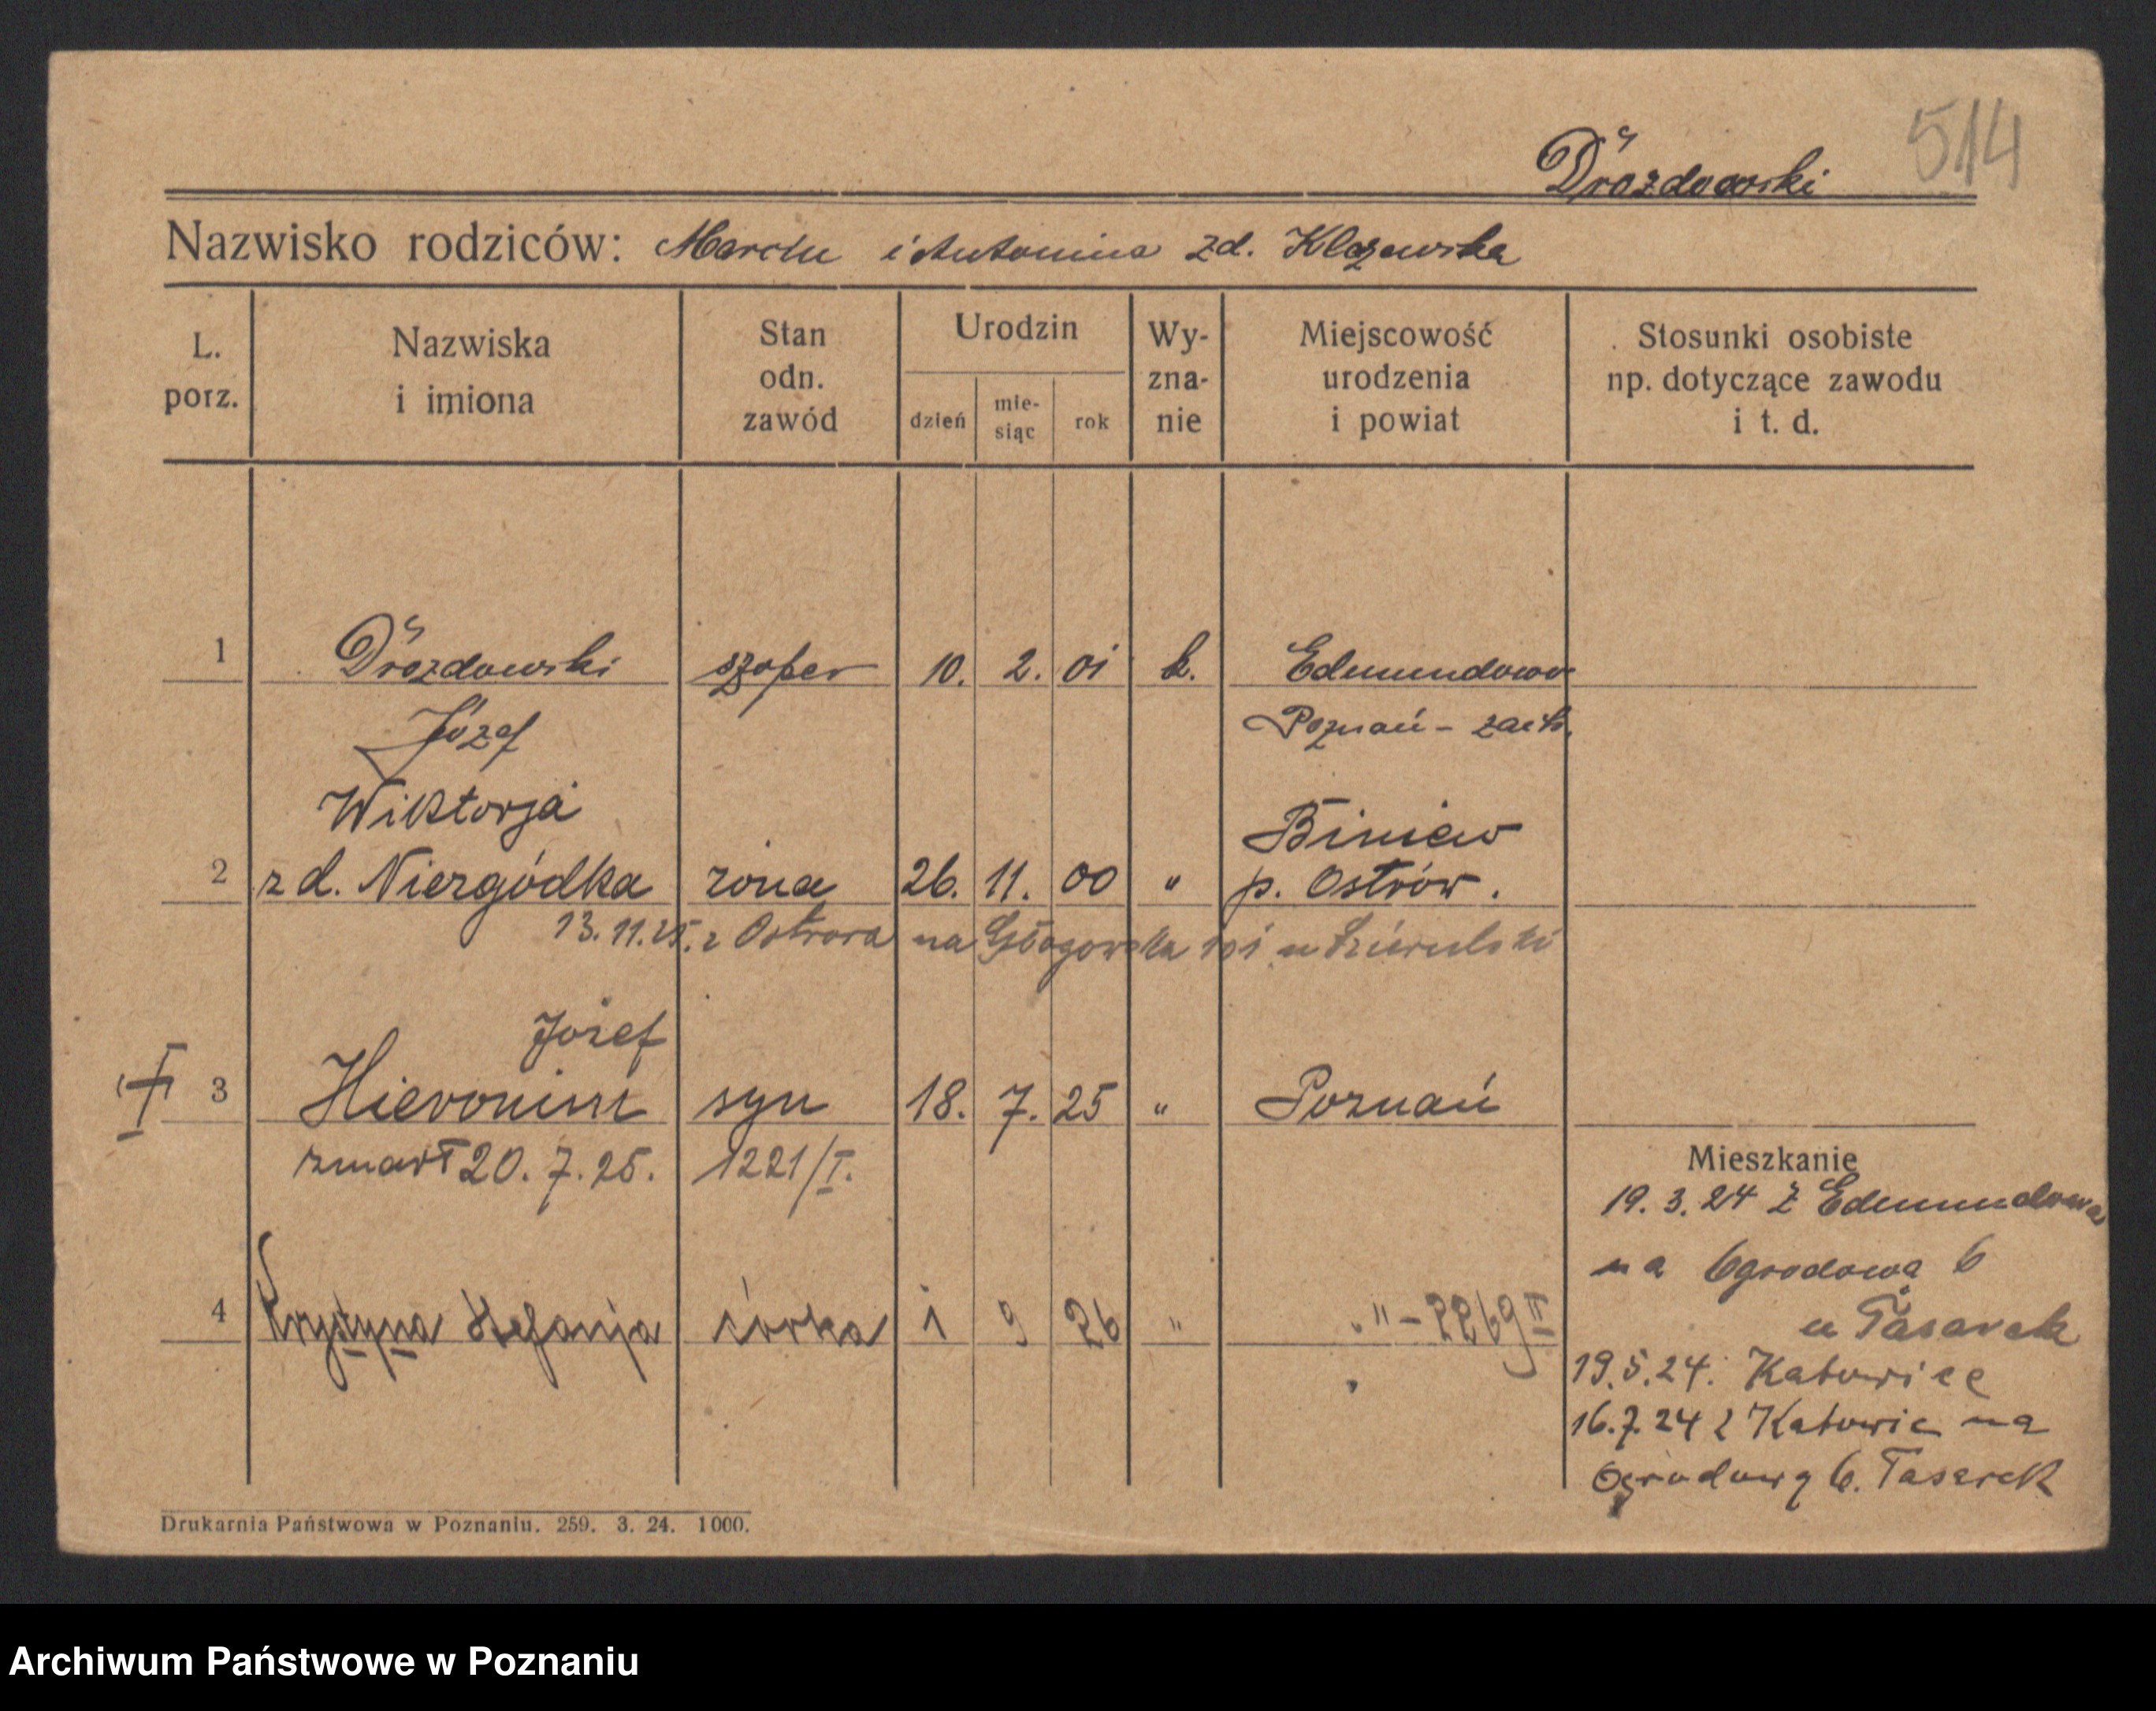 514
Drozdowski
Nazwisko rodziców: Marcin i Antonina zd.
L. porz.
Nazwiska i imiona
Stan odn. zawód
Urodzin
dzień
mie-siąc
rok
Wy-zna-nie
Miejscowość urodzenia i powiat
Stosunki osobiste np. dotyczące zawodu i t. d.
1 Drozdowski szofer 10. 2. 01 k. Edmundowo
Józef Poznań - zach.
Wiktorja Biniew
2 zd. Niezgódka żona 26. 11. 00 " p. Ostrów.
13.11.25. z Ostrowa na Głogowska 101 u
Józef
3 Hieronim syn 18. 7. 25 " Poznań
zmarł 20. 7. 25. 1221/I.
Mieszkanie
19. 3. 24 z Edmundowa
na Ogrodową 6
u Tasarek
4 Krystyna Stefanja córka 1 9 26 " " - 2269 II
19.5.24. Katowice
16.7.24 z Katowic na
Ogrodową 6. Tasarek
Drukarnia Państwowa w Poznaniu. 259. 3. 24. 1000.
Archiwum Państwowe w Poznaniu